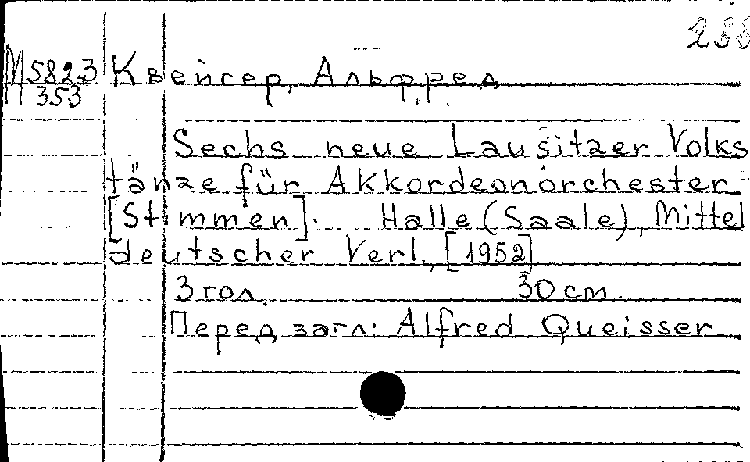 М5823
353
Квейсер, Альфред
Sechs neue Lausitzer Volks
tänze für Akkordeonorchester
[Stimmen]. Halle (Saale), Mittel
deutscher Verl., [1952]
3 гол. 30 cm.
Перед загл: Alfred Queisser